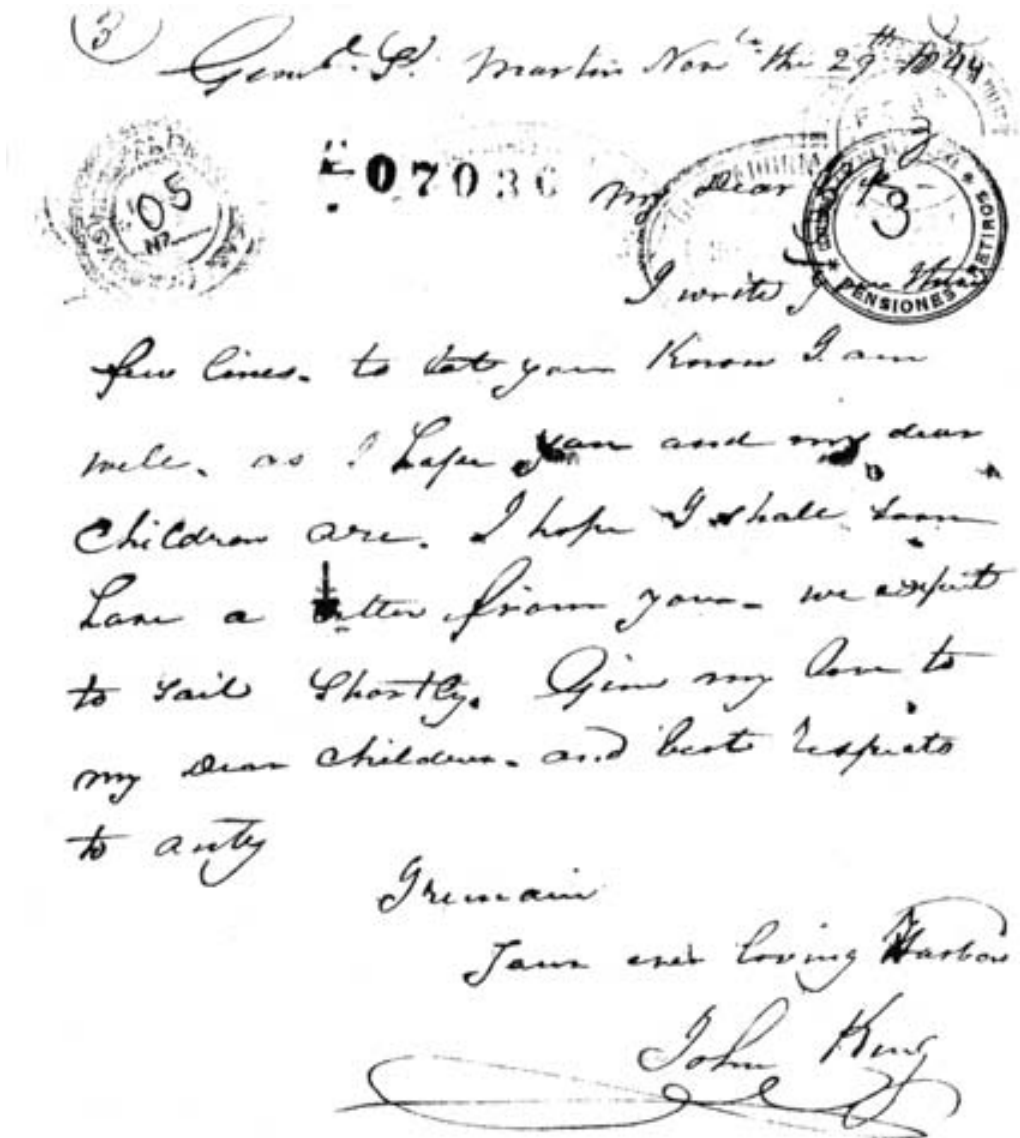 3
Genl. Sn. Martin Nov the 29th 1844
05
No
07030
My Dear
3
PENSIONES RETIROS
I write you these
few lines. to let you know I am
well. as I hope you and my dear
Children are. I hope I shall soon
have a letter from you. we expect
to sail shortly. Give my love to
my dear children. and best respects
to anty
I remain
Your ever loving Husbon
John King